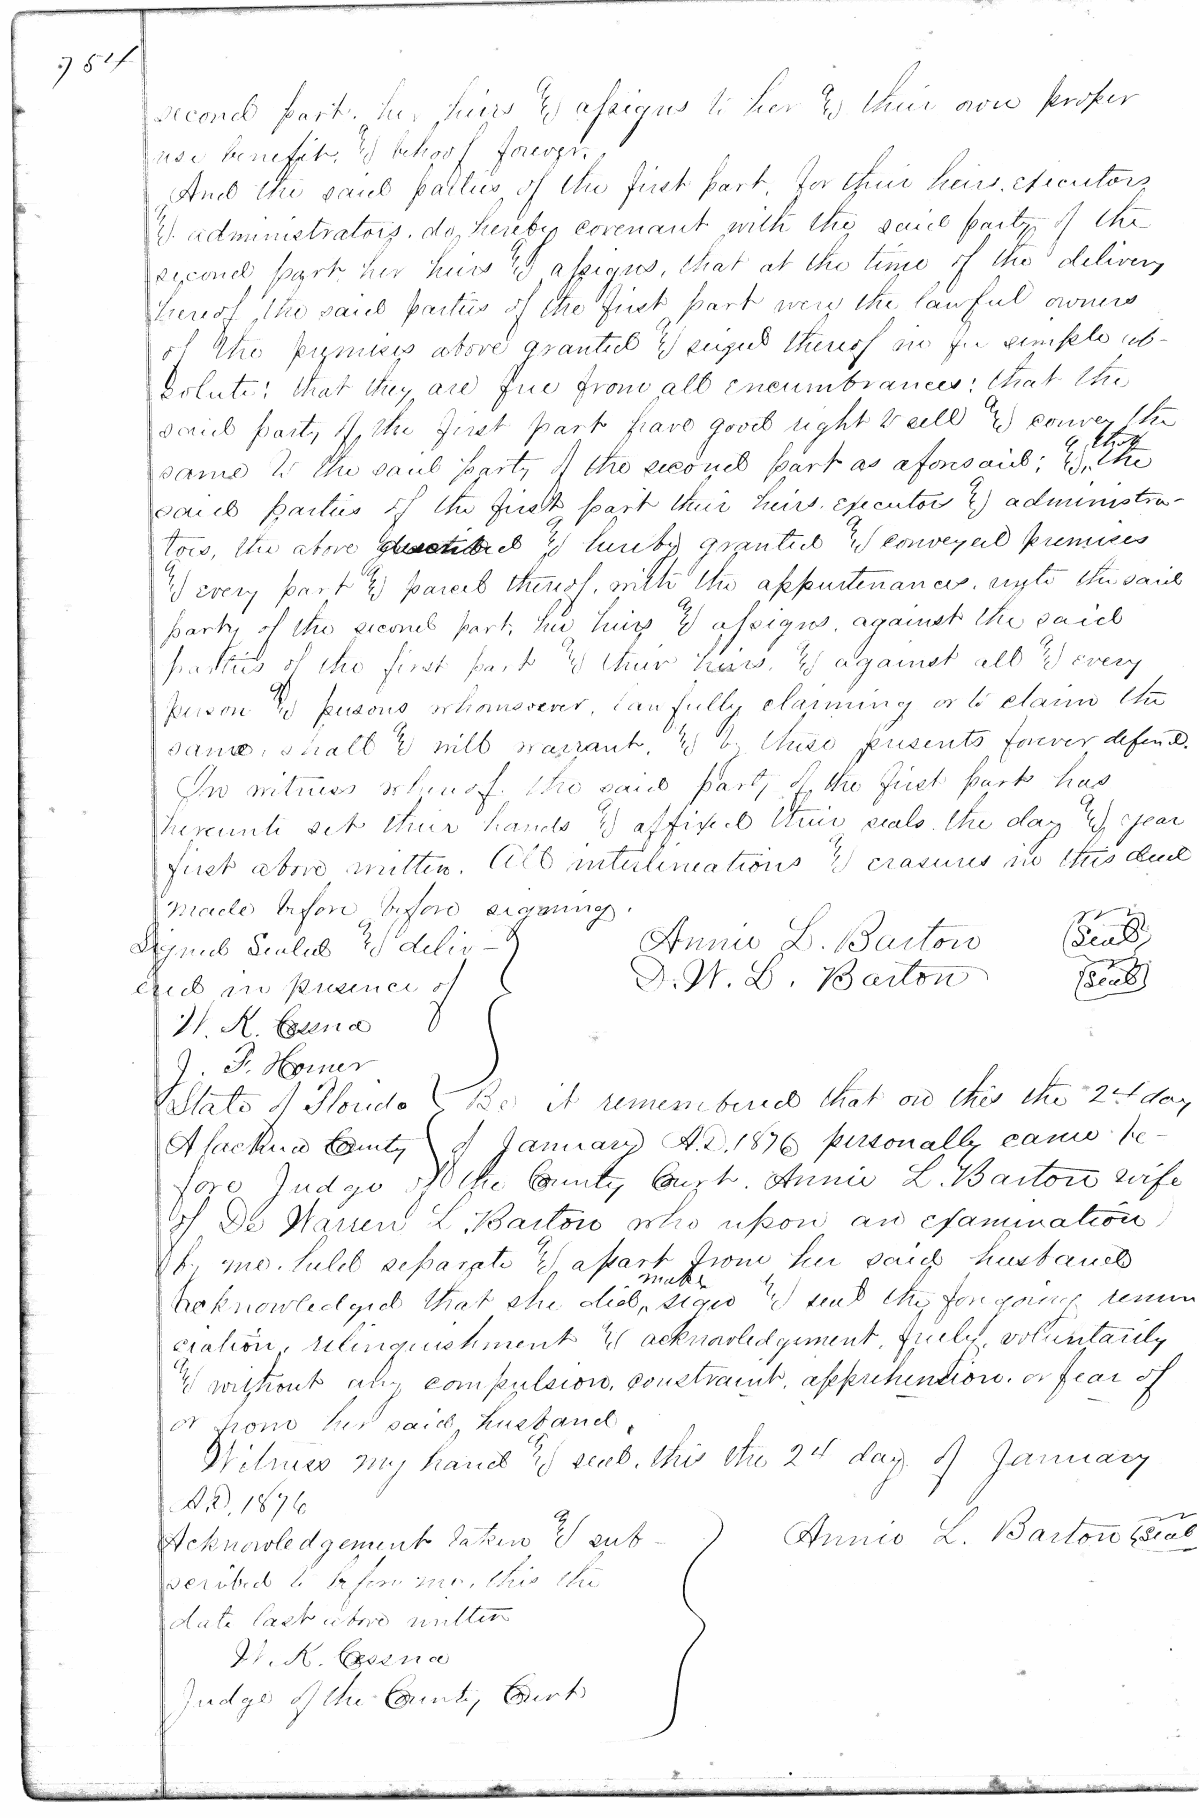 754
second part, her heirs & assigns to her & their own proper
use benefit, & behoof forever.
And the said parties of the first part, for their heirs, executors
& administrators, do hereby covenant with the said party of the
second part, her heirs & assigns, that at the time of the delivery
hereof the said parties of the first part were the lawful owners
of the premises above granted & seized thereof in fee simple ab-
solute; that they are free from all encumbrances; that the
said party of the first part have good right to sell & convey the
same to the said party of the second part as aforesaid; & that the
said parties of the first part their heirs, executors & administra-
tors, the above described & hereby granted & conveyed premises
& every part & parcel thereof, with the appurtenances, unto the said
party of the second part, her heirs & assigns, against the said
parties of the first part & their heirs, & against all & every
person & persons whomsoever, lawfully claiming or to claim the
same, shall & will warrant, & by these presents forever defend.
In witness whereof, the said party of the first part has
hereunto set their hands & affixed their seals, the day & year
first above written. All interlineations & erasures in this deed
made before before signing.
Signed Sealed & deliv-
ered in presence of
W. K. Cessna
J. F. Homer
Annie L. Barton (Seal)
D. W. L. Barton (Seal)
State of Florida
Alachua County
Be it remembered that on this the 24 day
of January A.D. 1876 personally came be-
fore Judge of the County Court, Annie L. Barton wife
of De Warren L Barton who upon an examination
by me, held separate & apart from her said husband
acknowledged that she did, make sign & seal the foregoing renun
ciation, relinquishment & acknowledgement, freely, voluntarily
& without any compulsion, constraint, apprehension, or fear of
or from her said husband.
Witness my hand & seal, this the 24 day of January
A.D. 1876
Annie L. Barton (Seal
Acknowledgement taken & sub-
scribed to before me, this the
date last above written
W. K. Cessna
Judge of the County Court